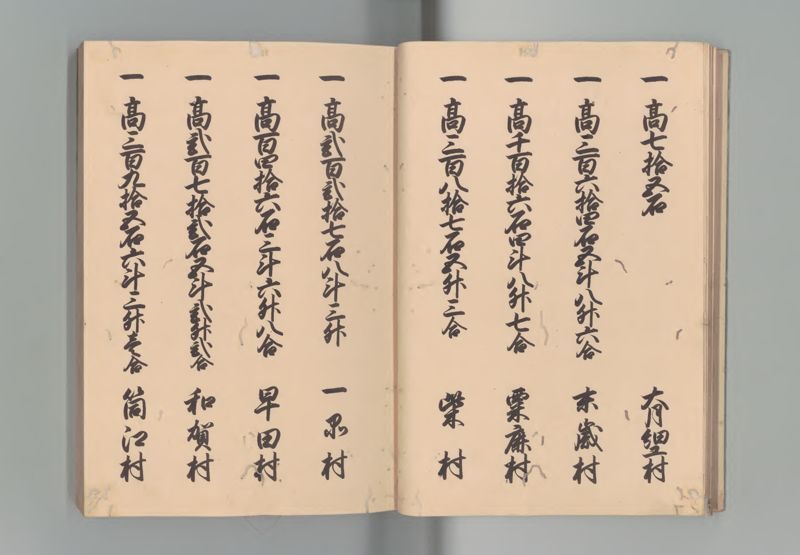 一 高七拾五石 村
一 高三百六拾四石五斗八升六合 末歳村
一 高千百拾六石四斗八升七合 粟鹿村
一 高三百八拾七石五升三合 柴村
一 高弐百弐拾七石八斗三升 一品村
一 高百四拾六石三斗六升八合 早田村
一 高弐百七拾弐石五斗弐升弐合 和賀村
一 高三百九拾五石六斗三升壱合 筒江村